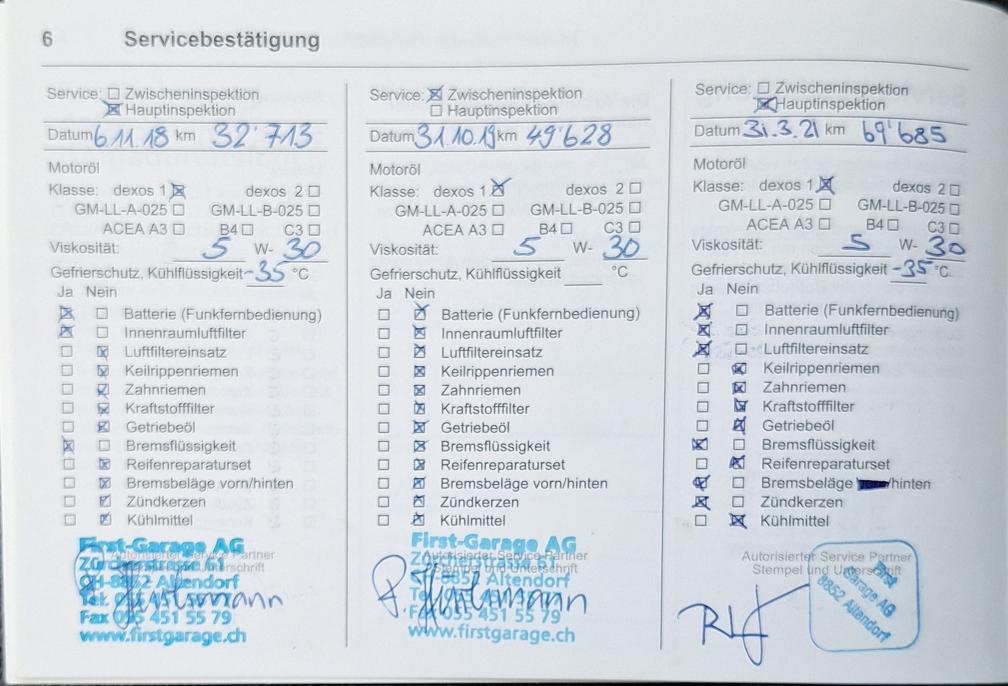 6 Servicebestätigung
Service: ☐ Zwischeninspektion
☒ Hauptinspektion
Datum 6.11.18 km 32'713
Motoröl
Klasse: dexos 1 ☒ dexos 2 ☐
GM-LL-A-025 ☐ GM-LL-B-025 ☐
ACEA A3 ☐ B4 ☐ C3 ☐
Viskosität: 5 W- 30
Gefrierschutz, Kühlflüssigkeit -35 °C
Ja Nein
☒ ☐ Batterie (Funkfernbedienung)
☒ ☐ Innenraumluftfilter
☐ ☒ Luftfiltereinsatz
☐ ☒ Keilrippenriemen
☐ ☒ Zahnriemen
☐ ☒ Kraftstofffilter
☐ ☒ Getriebeöl
☒ ☐ Bremsflüssigkeit
☐ ☒ Reifenreparaturset
☐ ☒ Bremsbeläge vorn/hinten
☐ ☒ Zündkerzen
☐ ☒ Kühlmittel
Autorisierter Service Partner
Stempel und Unterschrift
First-Garage AG
Zürcherstrasse 61
CH-8852 Altendorf
Tel. 055 451
Fax 055 451 55 79
www.firstgarage.ch
Service: ☒ Zwischeninspektion
☐ Hauptinspektion
Datum 31.10.19 km 49'628
Motoröl
Klasse: dexos 1 ☒ dexos 2 ☐
GM-LL-A-025 ☐ GM-LL-B-025 ☐
ACEA A3 ☐ B4 ☐ C3 ☐
Viskosität: 5 W- 30
Gefrierschutz, Kühlflüssigkeit °C
Ja Nein
☐ ☒ Batterie (Funkfernbedienung)
☐ ☒ Innenraumluftfilter
☐ ☒ Luftfiltereinsatz
☐ ☒ Keilrippenriemen
☐ ☒ Zahnriemen
☐ ☒ Kraftstofffilter
☐ ☒ Getriebeöl
☐ ☒ Bremsflüssigkeit
☐ ☒ Reifenreparaturset
☐ ☒ Bremsbeläge vorn/hinten
☐ ☒ Zündkerzen
☐ ☒ Kühlmittel
Autorisierter Service Partner
Stempel und Unterschrift
First-Garage AG
Zürcherstrasse 61
CH-8852 Altendorf
Tel. 055 451
Fax 055 451 55 79
www.firstgarage.ch
Service: ☐ Zwischeninspektion
☒ Hauptinspektion
Datum 31.3.21 km 69'685
Motoröl
Klasse: dexos 1 ☒ dexos 2 ☐
GM-LL-A-025 ☐ GM-LL-B-025 ☐
ACEA A3 ☐ B4 ☐ C3 ☐
Viskosität: 5 W- 30
Gefrierschutz, Kühlflüssigkeit -35 °C
Ja Nein
☒ ☐ Batterie (Funkfernbedienung)
☒ ☐ Innenraumluftfilter
☒ ☐ Luftfiltereinsatz
☐ ☒ Keilrippenriemen
☐ ☒ Zahnriemen
☐ ☒ Kraftstofffilter
☐ ☒ Getriebeöl
☒ ☐ Bremsflüssigkeit
☐ ☒ Reifenreparaturset
☒ ☐ Bremsbeläge /hinten
☒ ☐ Zündkerzen
☐ ☒ Kühlmittel
Autorisierter Service Partner
Stempel und Unterschrift
First
Garage AG
8852 Altendorf